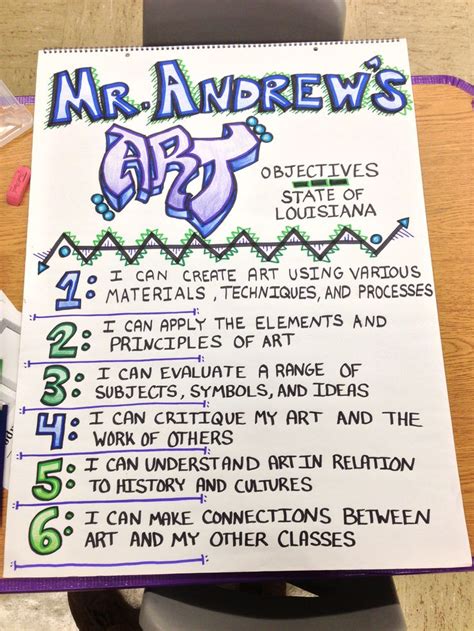 MR. ANDREW'S
ART
OBJECTIVES
STATE OF
LOUISIANA
1: I CAN CREATE ART USING VARIOUS
MATERIALS, TECHNIQUES, AND PROCESSES
2: I CAN APPLY THE ELEMENTS AND
PRINCIPLES OF ART
3: I CAN EVALUATE A RANGE OF
SUBJECTS, SYMBOLS, AND IDEAS
4: I CAN CRITIQUE MY ART AND THE
WORK OF OTHERS
5: I CAN UNDERSTAND ART IN RELATION
TO HISTORY AND CULTURES
6: I CAN MAKE CONNECTIONS BETWEEN
ART AND MY OTHER CLASSES